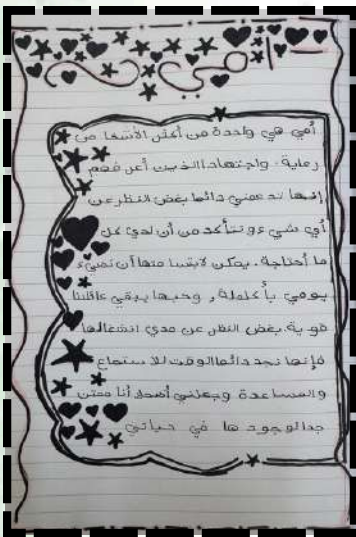 أمي هي واحدة من أكثر الأشخاص
رعاية. واجتهادا الذين أعرفهم
إنها تدعمني دائما بغض النظر عن
أي شيء وتتأكد من أن لدي كل
ما أحتاجة. يمكن لابتسامتها أن تضيء
يومي بأكمله, وحبها يبقي عائلتنا
قوية. بغض النظر عن مدي انشغالها
فإنها تجد دائما الوقت للاستماع
والمساعدة وجعلني أضحك أنا ممتن
جدا لوجودها في حياتي